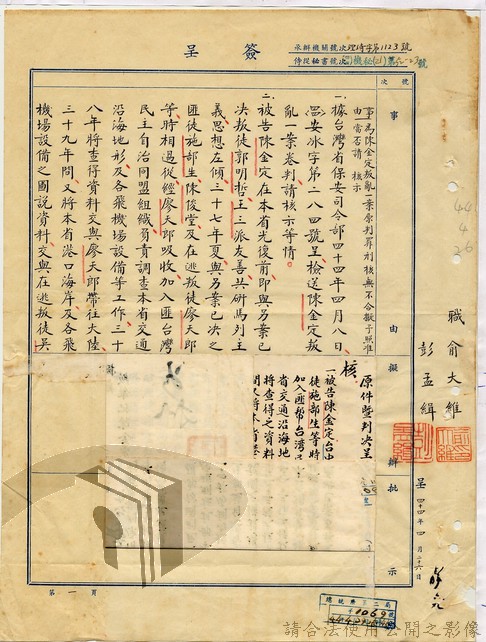 簽呈
承辦機關號次理倚字第1123號
侍從秘書號次
號次
事由
擬辦
批示
事由
為陳金定叛亂一案原判算刑核無不合擬予照准當否請核示
一、據台灣省保安司令部四十四年四月八日
安冰字第二八四號呈檢送陳金定叛
亂一案卷判請核示等情。
二、被告陳金定在本省光復前即與另案已
決叛徒郭明哲王三派友善共研馬列主
義思想左傾三十七年夏與另案已決之
匪徒施部生陳俊堂及在逃叛徒廖天郎
等時相過從經廖天郎吸收加入匪台灣
民主自治同盟組織負責調查本省交通
沿海地形及各飛機場設備等工作三十
八年將查得資料交與廖天郎帶往大陸
三十九年間又將本省港口海岸及各飛
機場設備之圖說資料交與在逃叛徒吳
原件暨判決呈
核
一被告陳金定台中
徒施部生等時
加入匪幫台灣
省交通沿海地
將查得之資料
職 俞大維
彭孟緝
呈 四十四年四月二十六日
44
4
26
總統府第二局
1069
第一頁
請合法使用公開之影像